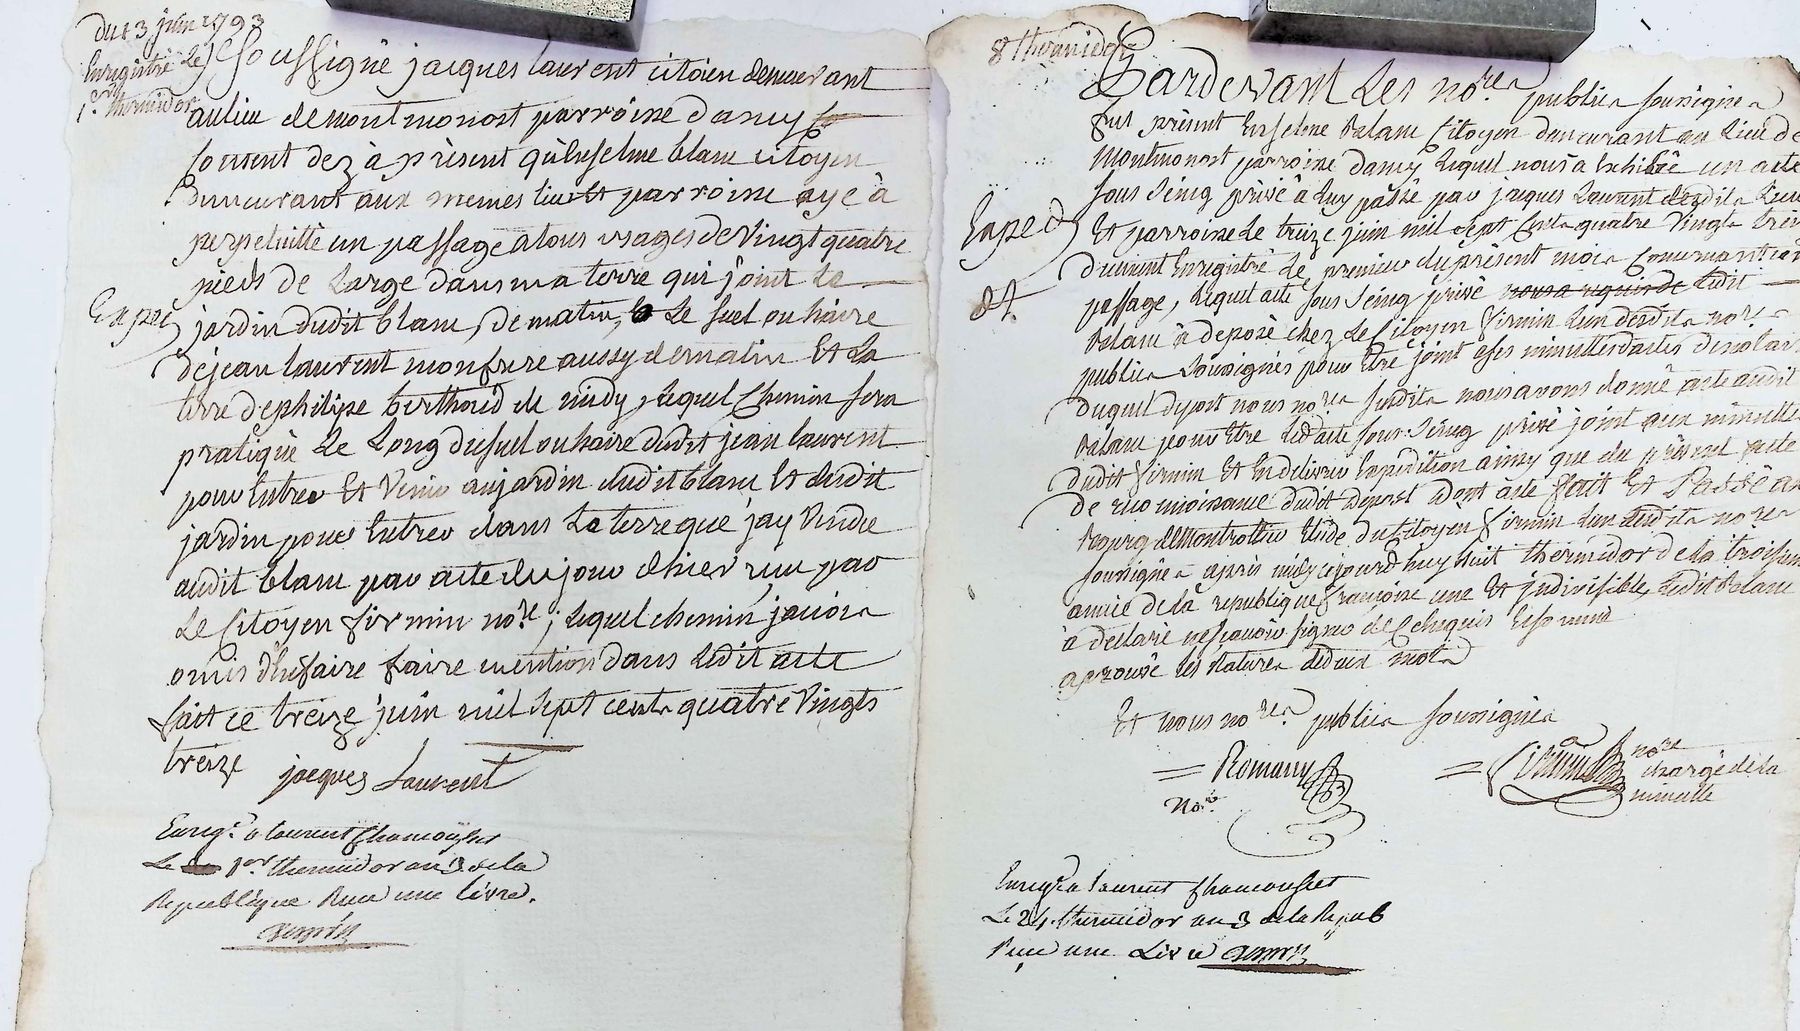 du 13 juin 1793
Enregistré le
1er thermidor
Je soussigné jacques laurent citoien demeurant
au lieu de montmonost parroisse dancy
consent dez à présent qu'enselme blanc citoyen
demeurant aux memes lieu et parroisse aye à
perpetuitté un passage a tous usages de vingt quatre
pieds de large dans ma terre qui joint le
Exped
jardin dudit blanc, de matin, le suel ou haire
de jean laurent mon frere aussy de matin et la
terre de philipe berthoud de midy, lequel chemin sera
pratiqué le long du suel ou haire dudit jean laurent
pour entrer et venir au jardin dudit blanc et dudit
jardin pour entrer dans la terre que j'ay vendue
audit blanc par acte du jour d'hier reçu par
le citoyen firmin nore; lequel chemin j'avois
omis de faire faire mention dans ledit acte
fait ce treize juin mil sept cents quatre vingts
treize jacques Laurent
Enregé a laurent chamousset
Le 1er thermidor an 3 de la
Republique Reçu une livre.
8 thermidor
Pardevant Les nores publics soussignés
fut présent Enselme Blanc Citoyen demeurant au Lieu de
Montmonost parroisse dancy lequel nous a Exhibé un acte
sous seing privé à luy passé par jacques Laurent desdits Lieu
Exped
Et parroisse le treize juin mil sept cents quatre vingts treize
duement Enregistré le premier du présent mois concernant un
passage, lequel acte sous seing privé nous a requis de ledit
Blanc à déposé chez le Citoyen firmin L'un desdits nores
publics soussignés pour être joint a ses minuttes d'actes de notaire
duquel depost nous nores susdits nous avons donné acte audit
Blanc pour être ledit acte sous seing privé joint aux minuttes
dudit firmin Et En delivrer Expédition ainsy que du présent acte
de reconnoissance dudit depost dont acte fait Et Passé au
Bourg de Montrottier Etude du Citoyen firmin L'un desdits nores
soussignés après midy ce jourd'huy huit thermidor de la troisieme
année de la republique françoise une Et indivisible, ledit Blanc
à declaré ne sçavoir signer de ce Enquis Et sommé
aprouvé les ratures de deux mots
Et nous nores publics soussignés
Romany
Nore.
firmin nore
chargé de la
minutte
Enregé a laurent chamousset
Le 24 thermidor an 3 de la Repub
Reçu une Livre